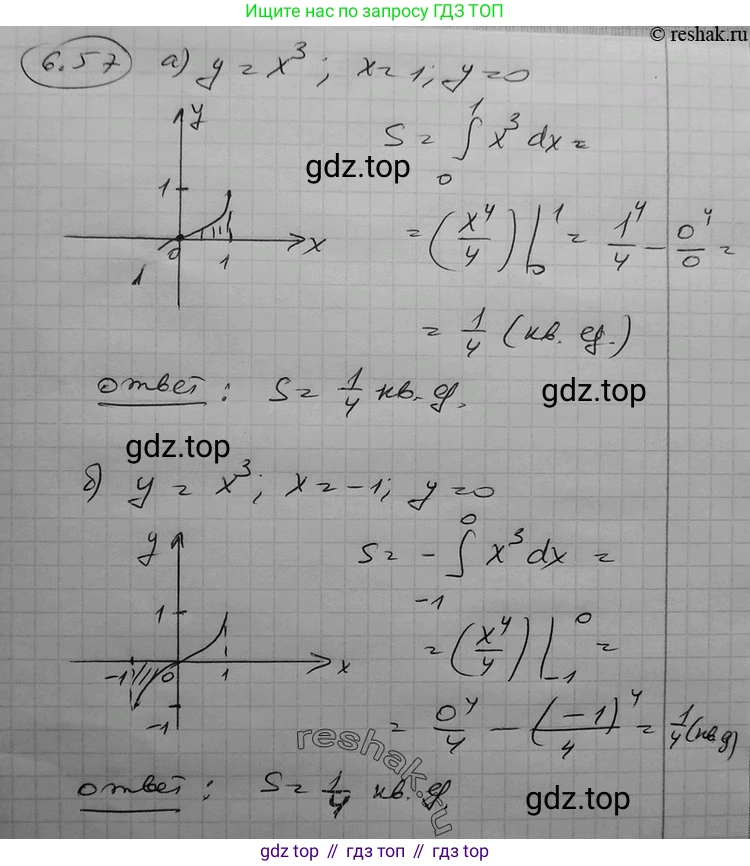 Ищите нас по запросу ГДЗ ТОП
© reshak.ru
6.57 а) y = x³; x = 1; y = 0
y
1
0
1
x
1
S = ∫₀¹ x³ dx =
gdz.top
= (x⁴/4) |₀¹ = 1⁴/4 − 0⁴/0 =
= 1/4 (кв. ед.)
ответ: S = 1/4 кв. ед.
gdz.top
gdz.top
б) y = x³; x = −1; y = 0
y
1
−1
0
1
x
−1
S = − ∫₋₁⁰ x³ dx =
= (x⁴/4) |₋₁⁰ =
= 0⁴/4 − (−1)⁴/4 = 1/4 (кв д)
reshak.ru
ответ: S = 1/4 кв. ед
gdz.top
gdz.top // gdz.top // gdz.top